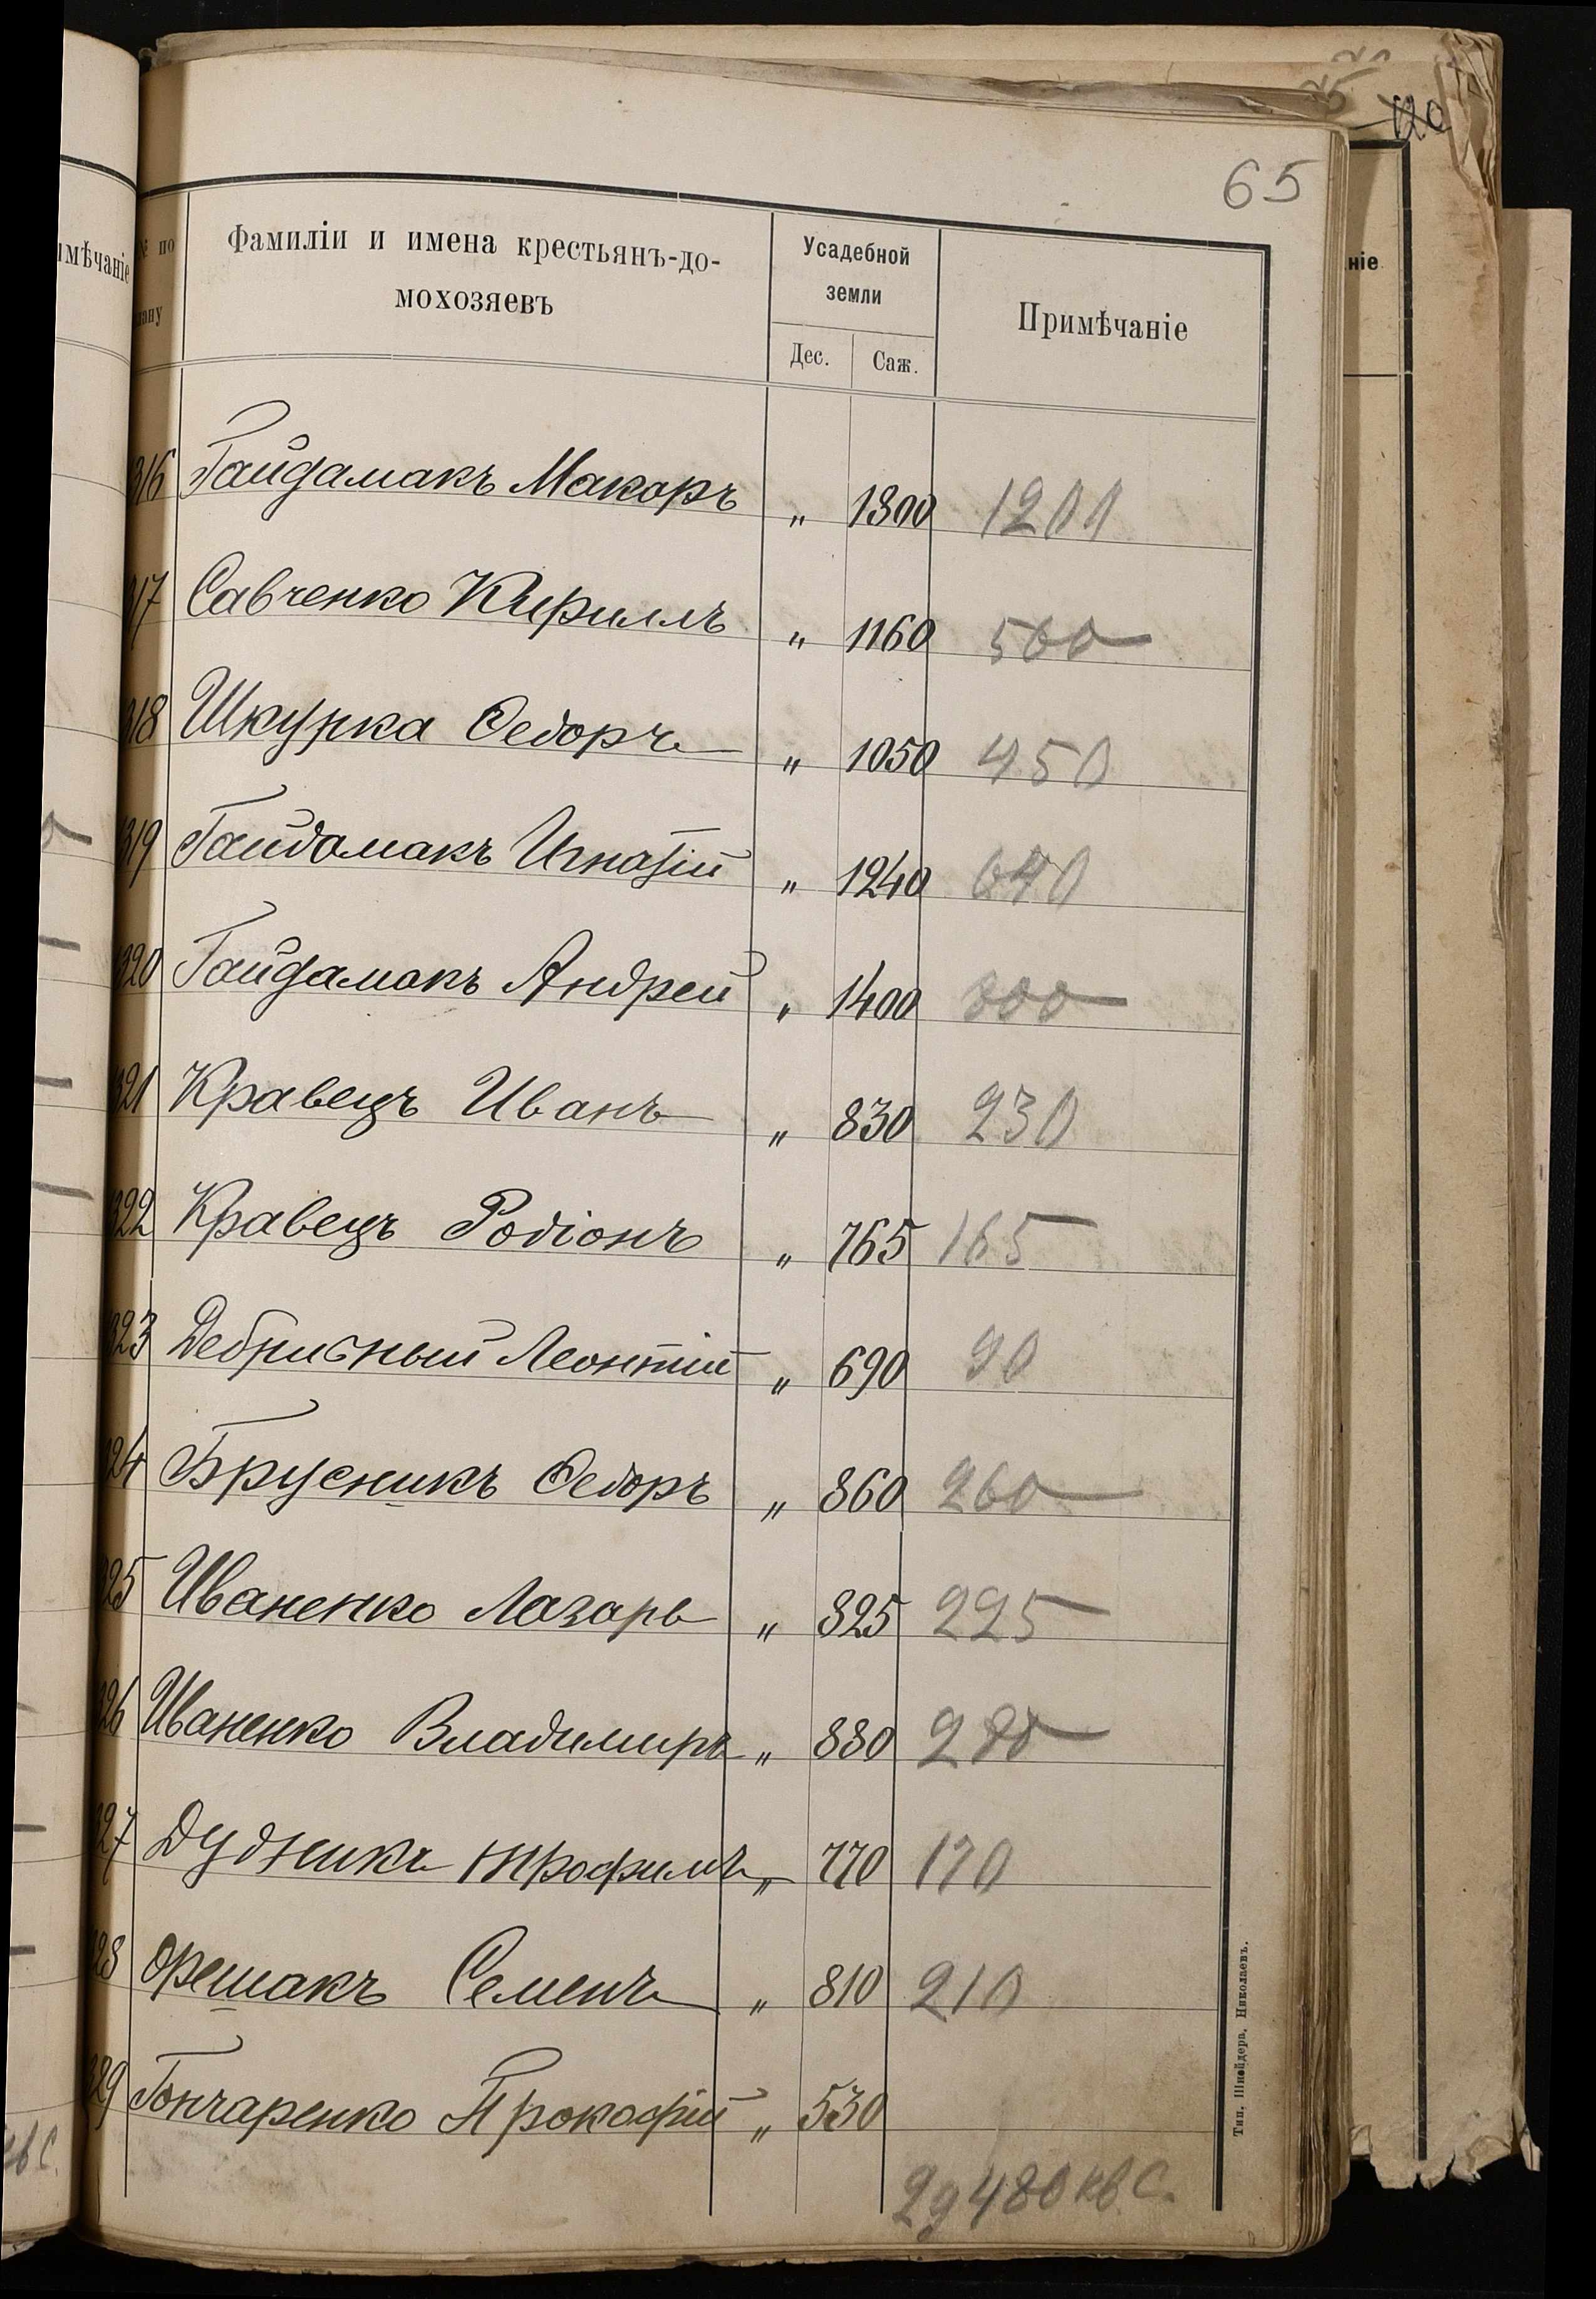 65
№ по
Фамиліи и имена крестьянъ-до-
мохозяевъ
Усадебной
земли
Дес. Саж.
Примѣчаніе
316 Гайдамакъ Макаръ " 1800 1200
317 Савченко Кириллъ " 1160 560
318 Шкурка Федоръ " 1050 450
319 Гайдамакъ Игнатій " 1240 640
320 Гайдамакъ Андрей " 1400 800
321 Кравецъ Иванъ " 830 230
322 Кравецъ Родіонъ " 765 165
323 Леонтій " 690 90
324 Брусникъ Федоръ " 860 260
325 Иваненко Лазарь " 825 225
326 Иваненко Владимиръ " 880 280
327 Дудникъ Трофимъ " 770 170
328 Орешакъ Семенъ " 810 210
329 Гончаренко Прокофій " 530
29480 кв С.
Тип. Шнейдера, Николаевъ.